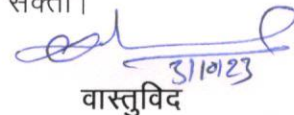 सकता।
3/10/23
वास्तुविद